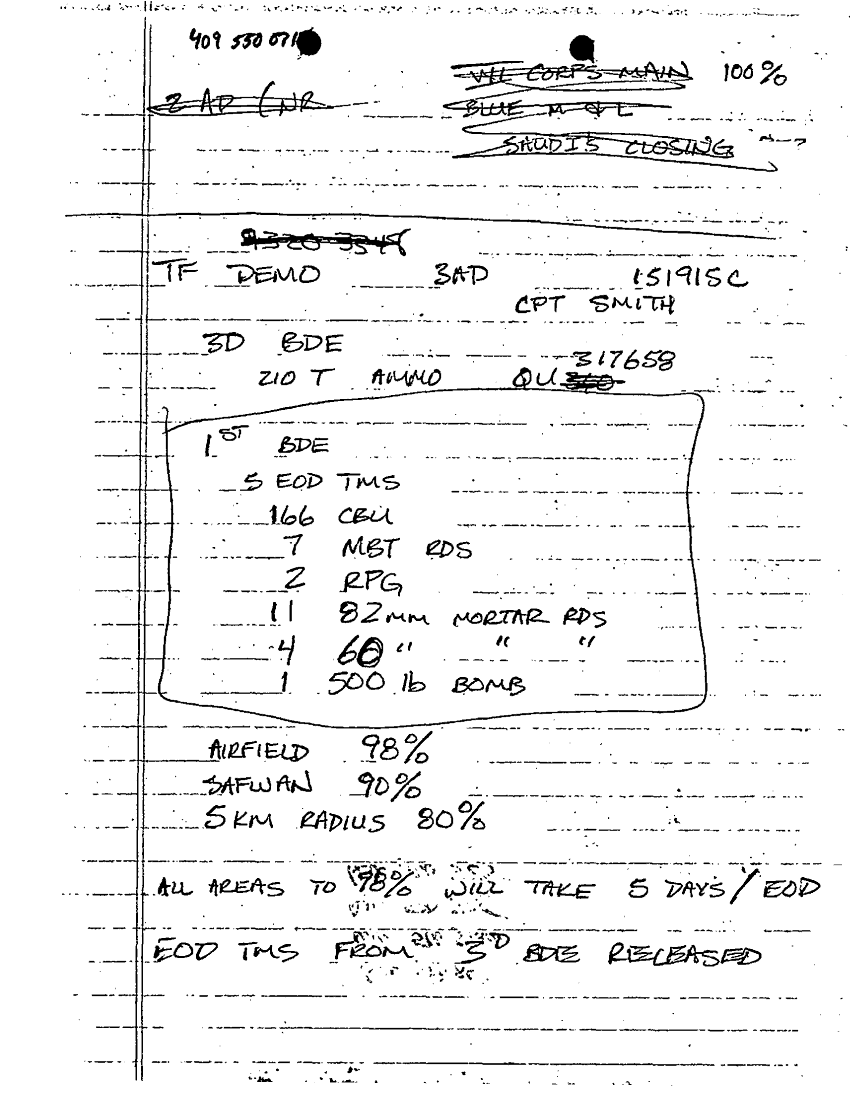 409 550 071
VII CORPS MAIN 100%
2 AD (NR
BLUE M & L
SAUDI'S CLOSING
9320 3348
TF DEMO 3AD 151915C
CPT SMITH
3D BDE
317658
210 T AMMO QU
1ST BDE
5 EOD TMS
166 CBU
7 MBT RDS
2 RPG
11 82mm MORTAR RDS
4 60 " " "
1 500 lb BOMB
AIRFIELD 98%
SAFWAN 90%
5 KM RADIUS 80%
ALL AREAS TO 98% WILL TAKE 5 DAYS / EOD
EOD TMS FROM 3D BDE RELEASED